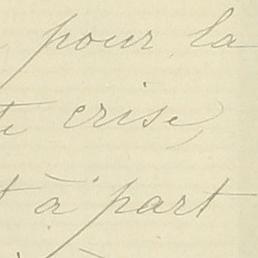 pour la
te crise,
t à part